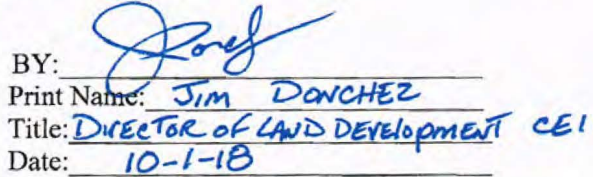 BY:
Print Name: JIM DONCHEZ
Title: DIRECTOR OF LAND DEVELOPMENT CEI
Date: 10-1-18